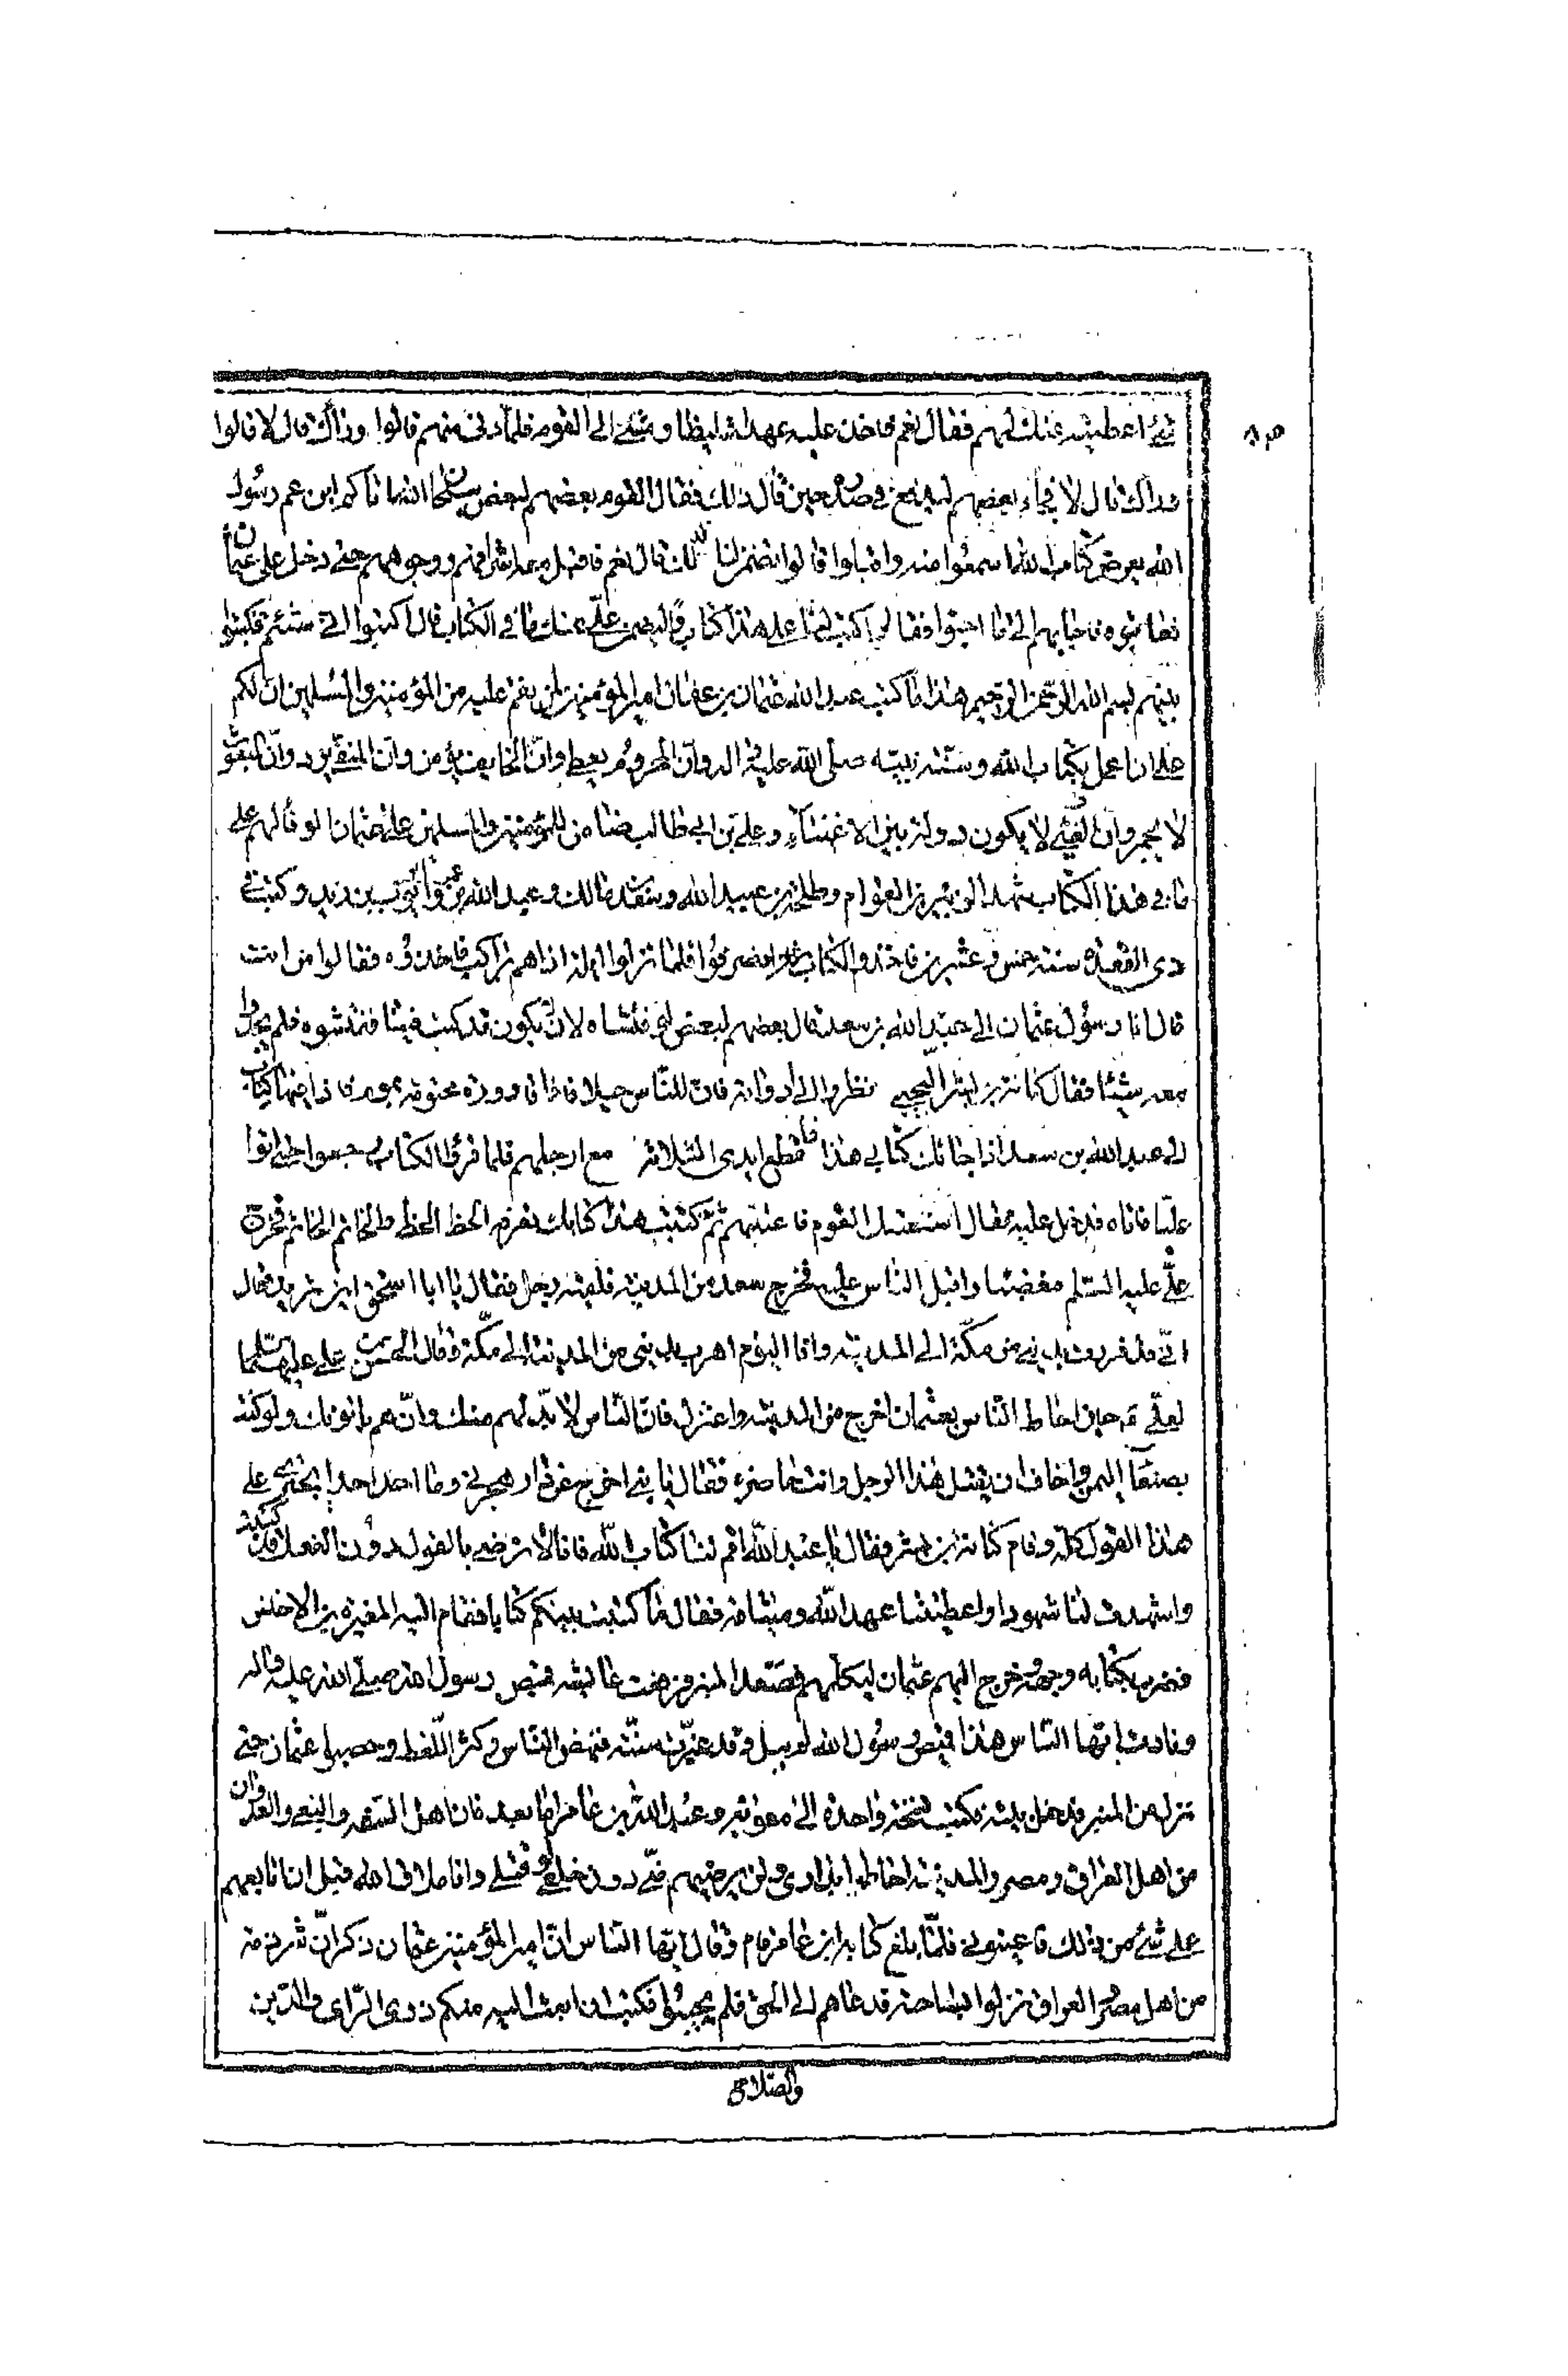 شئ اعطيته عنك لهم فقال نعم فاخذ عليه عهدا غليظا ومشى الى القوم فلما دنى منهم قالوا وراك قال لا قالوا
وراك قال لا فجاء بعضهم ليدفع في صدره حين قال ذلك فقال القوم بعضهم لبعض سبحان الله اتاكم ابن عم رسول
الله يعرض كتاب الله اسمعوا منه واقبلوا قالوا تضمن لنا كذلك قال نعم فاقبل معه اشرافهم ووجوههم حتى دخل على عثمان
فعاتبوه فاجابهم الى ما احبوا فقالوا اكتب لنا على هذا كتابا وليضمن علي عنك ما في الكتاب قال اكتبوا انى شئتم فكتبوا
بينهم بسم الله الرحمن الرحيم هذا ما كتب عبد الله عثمان بن عفان امير المؤمنين لمن نقم عليه من المؤمنين والمسلمين ان لكم
على ان اعمل بكتاب الله وسنة نبيه صلى الله عليه واله وان المحروم يعطى وان الخايف يؤمن وان المنفي يرد وان المبعوث
لا يجمر وان الفئ لا يكون دولة بين الاغنياء وعلي بن ابي طالب ضامن للمؤمنين والمسلمين على عثمان الوفا لهم على
ما في هذا الكتاب شهد الزبير بن العوام وطلحة بن عبيد الله وسعد مالك وعبد الله بن عمر وابو ايوب بن زيد وكتب في
ذي القعدة سنة خمس وعشرين فاخذوا الكتاب ثم انصرفوا فلما نزلوا ايلة اذا هم براكب فاخذوه فقالوا من انت
قال انا رسول عثمان الى عبد الله بن سعد قال بعضهم لبعض لو فتشناه لان لا يكون قد كتب فينا ففتشوه فلم يجدوا
معه شيئا فقال كنانة بن بشر التجيبي نظروا الى ادواته فان للناس حيلا فاذا قارورة مختومة بموم فاذا فيها كتاب
الى عبد الله بن سعد اذا جائك كتابي هذا فاقطع ايدي الثلاثة مع ارجلهم فلما قرؤا الكتاب رجعوا حتى اتوا
عليا فاتاه فدخل عليه فقال استعتبك القوم فاعتبتهم ثم كتبت هذا كتابك نعرفه الخط الخط والخاتم الخاتم فخرج
علي عليه السلم مغضبا واقبل الناس عليه فخرج سعد من المدينة فلقيه رجل فقال يا ابا اسحق اين تريد فقال
اني قد فررت بديني من مكة الى المدينة وانا اليوم اهرب بديني من المدينة الى مكة وقال الحسن بن علي عليهما السلم
لعلي ع حين احاط الناس بعثمان اخرج من المدينة واعتزل فان الناس لا بد لهم منك وانهم ياتونك ولو كنت
بصنعا اليمن واخاف ان يقتل هذا الرجل وانت حاضره فقال يا بني اخرج عن دار هجرتي وما اظن احدا يجترئ على
هذا القول كله وقام كنانة بن بشر فقال يا عبد الله اقم لنا كتاب الله فانا لا نرضى بالقول دون الفعل قد كتبت
واشهدت لنا شهودا واعطيتنا عهد الله وميثاقه فقال ما كتبت بينكم كتابا فقام اليه المغيرة بن الاخنس
فضرب بكتابه وجهه وخرج اليهم عثمان ليكلمهم فصعد المنبر فرفعت عايشه قميص رسول الله صلى الله عليه واله
ونادت ايها الناس هذا قميص رسول الله لم يبل وقد غيرت سنته فنهض الناس وكثر اللغط وحصبوا عثمان حتى
نزل عن المنبر فدخل بيته فكتب نسخة واحدة الى معوية وعبد الله بن عامر اما بعد فان اهل السفه والبغي والعدوان
من اهل العراق ومصر والمدينة احاطوا بداري ولن يرضيهم مني دون خلعي او قتلي وانا ملاق الله قبل ان اتابعهم
على شئ من ذلك فاعينوني فلما بلغ كتابه ابن عامر قام وقال ايها الناس ان امير المؤمنين عثمان ذكر ان شرذمة
من اهل مصر والعراق نزلوا بساحته فدعاهم الى الحق فلم يجيبوا فكتب ان ابعث اليه منكم ذوي الراي والدين
والصلاح